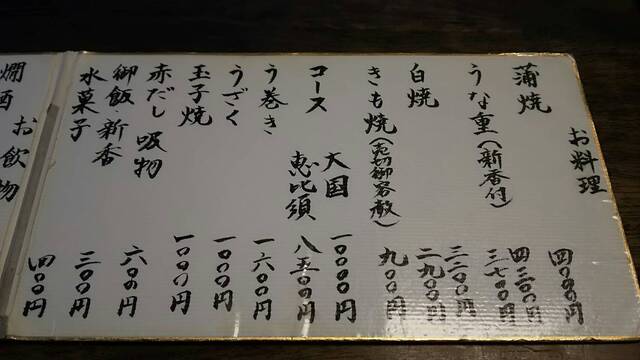 お料理
蒲焼 四〇〇〇円
うな重（新香付） 四二〇〇円
三七〇〇円
三二〇〇円
白焼 二九〇〇円
きも焼（売切御容赦） 九〇〇円
コース 大国 一〇〇〇〇円
恵比須 八五〇〇円
う巻き 一六〇〇円
うざく 一〇〇〇円
玉子焼 一〇〇〇円
赤だし 吸物 六〇〇円
御飯 新香 三〇〇円
水菓子 四〇〇円
お飲物
燗酒